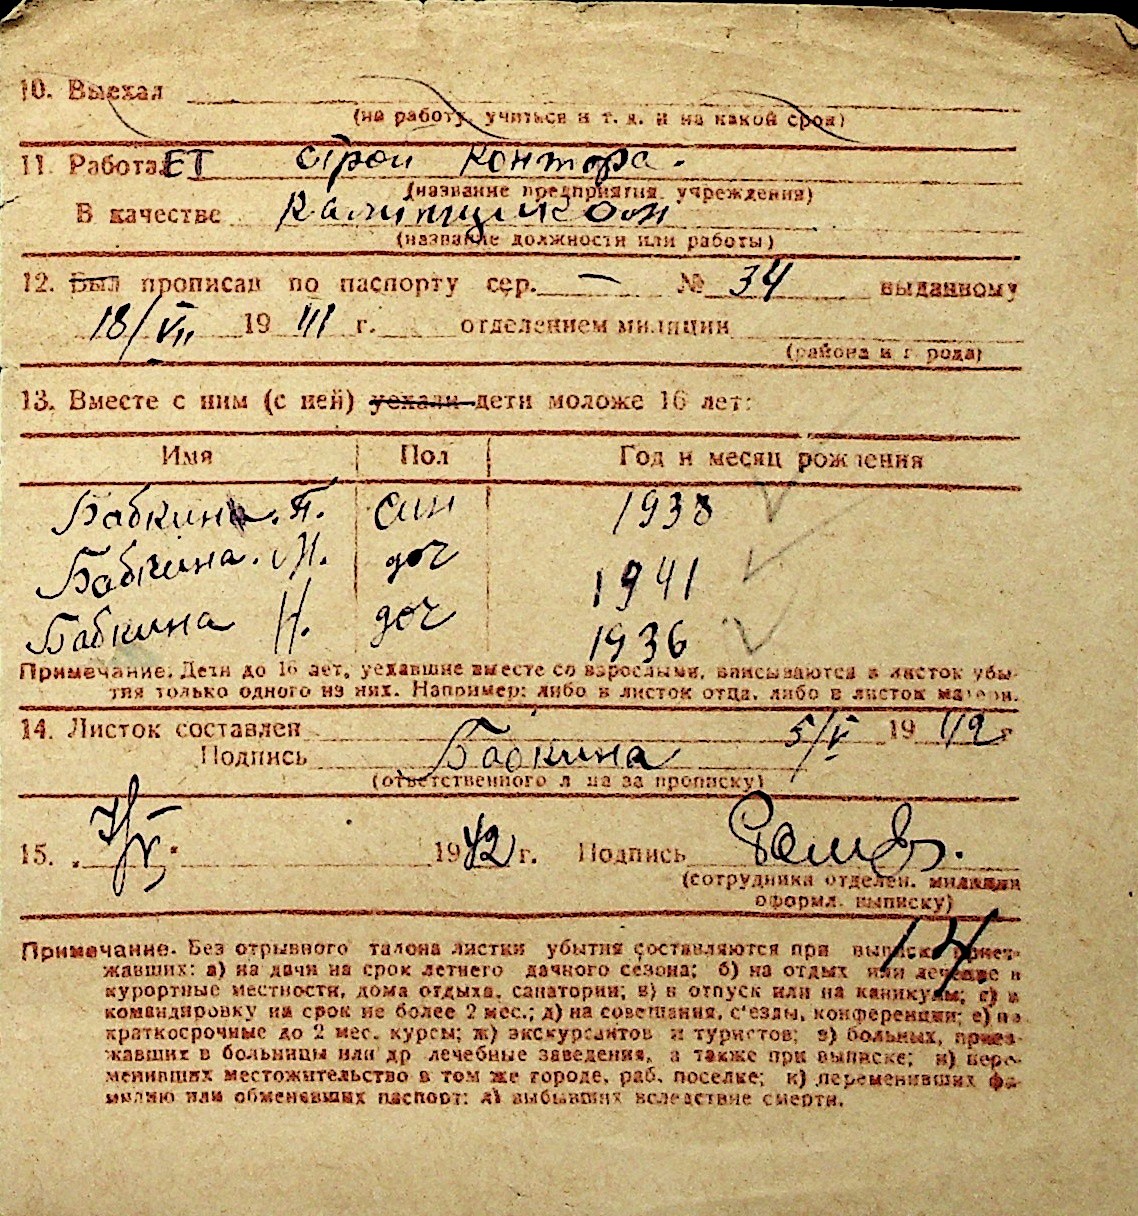 10. Выехал
(на работу, учиться и т. д. и на какой срок)
11. РаботаЕТ строй контора.
(название предприятия, учреждения)
В качестве
(название должности или работы)
12. Был прописан по паспорту сер. — № 34 выданному
18/VII 19 г. отделением милиции
(района и города)
13. Вместе с ним (с ней) уехали дети моложе 16 лет:
Имя Пол Год и месяц рождения
Бабкина. П. син 1938
Бабкина. М. доч 1941
Бабкина Н. доч 1936
Примечание. Дети до 16 лет, уехавшие вместе со взрослыми, вписываются в листок убы-
тия только одного из них. Например: либо в листок отца, либо в листок матери.
14. Листок составлен 5/V 1942 г
Подпись Бабкина
(ответственного лица за прописку)
15. 1942 г. Подпись
(сотрудника отделен. милиции
оформл. выписку)
14
Примечание. Без отрывного талона листки убытия составляются при выписке приез-
жавших: а) на дачи на срок летнего дачного сезона; б) на отдых или лечение в
курортные местности, дома отдыха, санатории; в) в отпуск или на каникулы; г) в
командировку на срок не более 2 мес.; д) на совещания, с'езды, конференции; е) на
краткосрочные до 2 мес. курсы; ж) экскурсантов и туристов; з) больных, приез-
жавших в больницы или др лечебные заведения, а также при выписке; и) пере-
менивших местожительство в том же городе, раб. поселке; к) переменивших фа-
милию или обменявших паспорт; л) выбывших вследствие смерти.